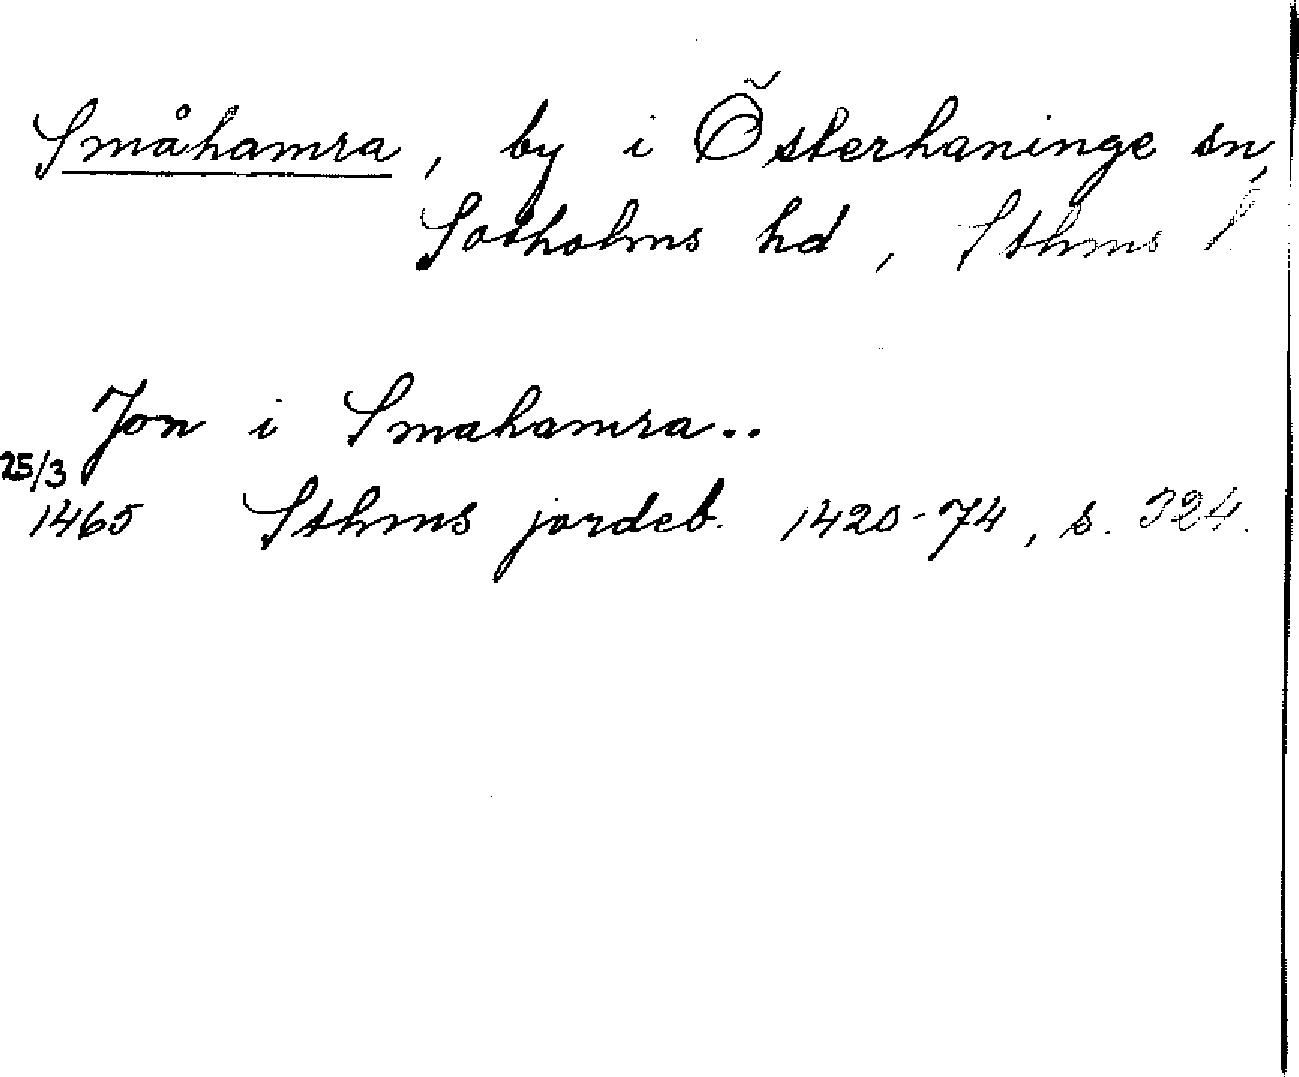 Småhamra, by i Österhaninge sn,
Sotholms hd, Sthms l.
Jon i Smahamra..
25/3
1465 Sthms jordeb. 1420-74, s. 324.